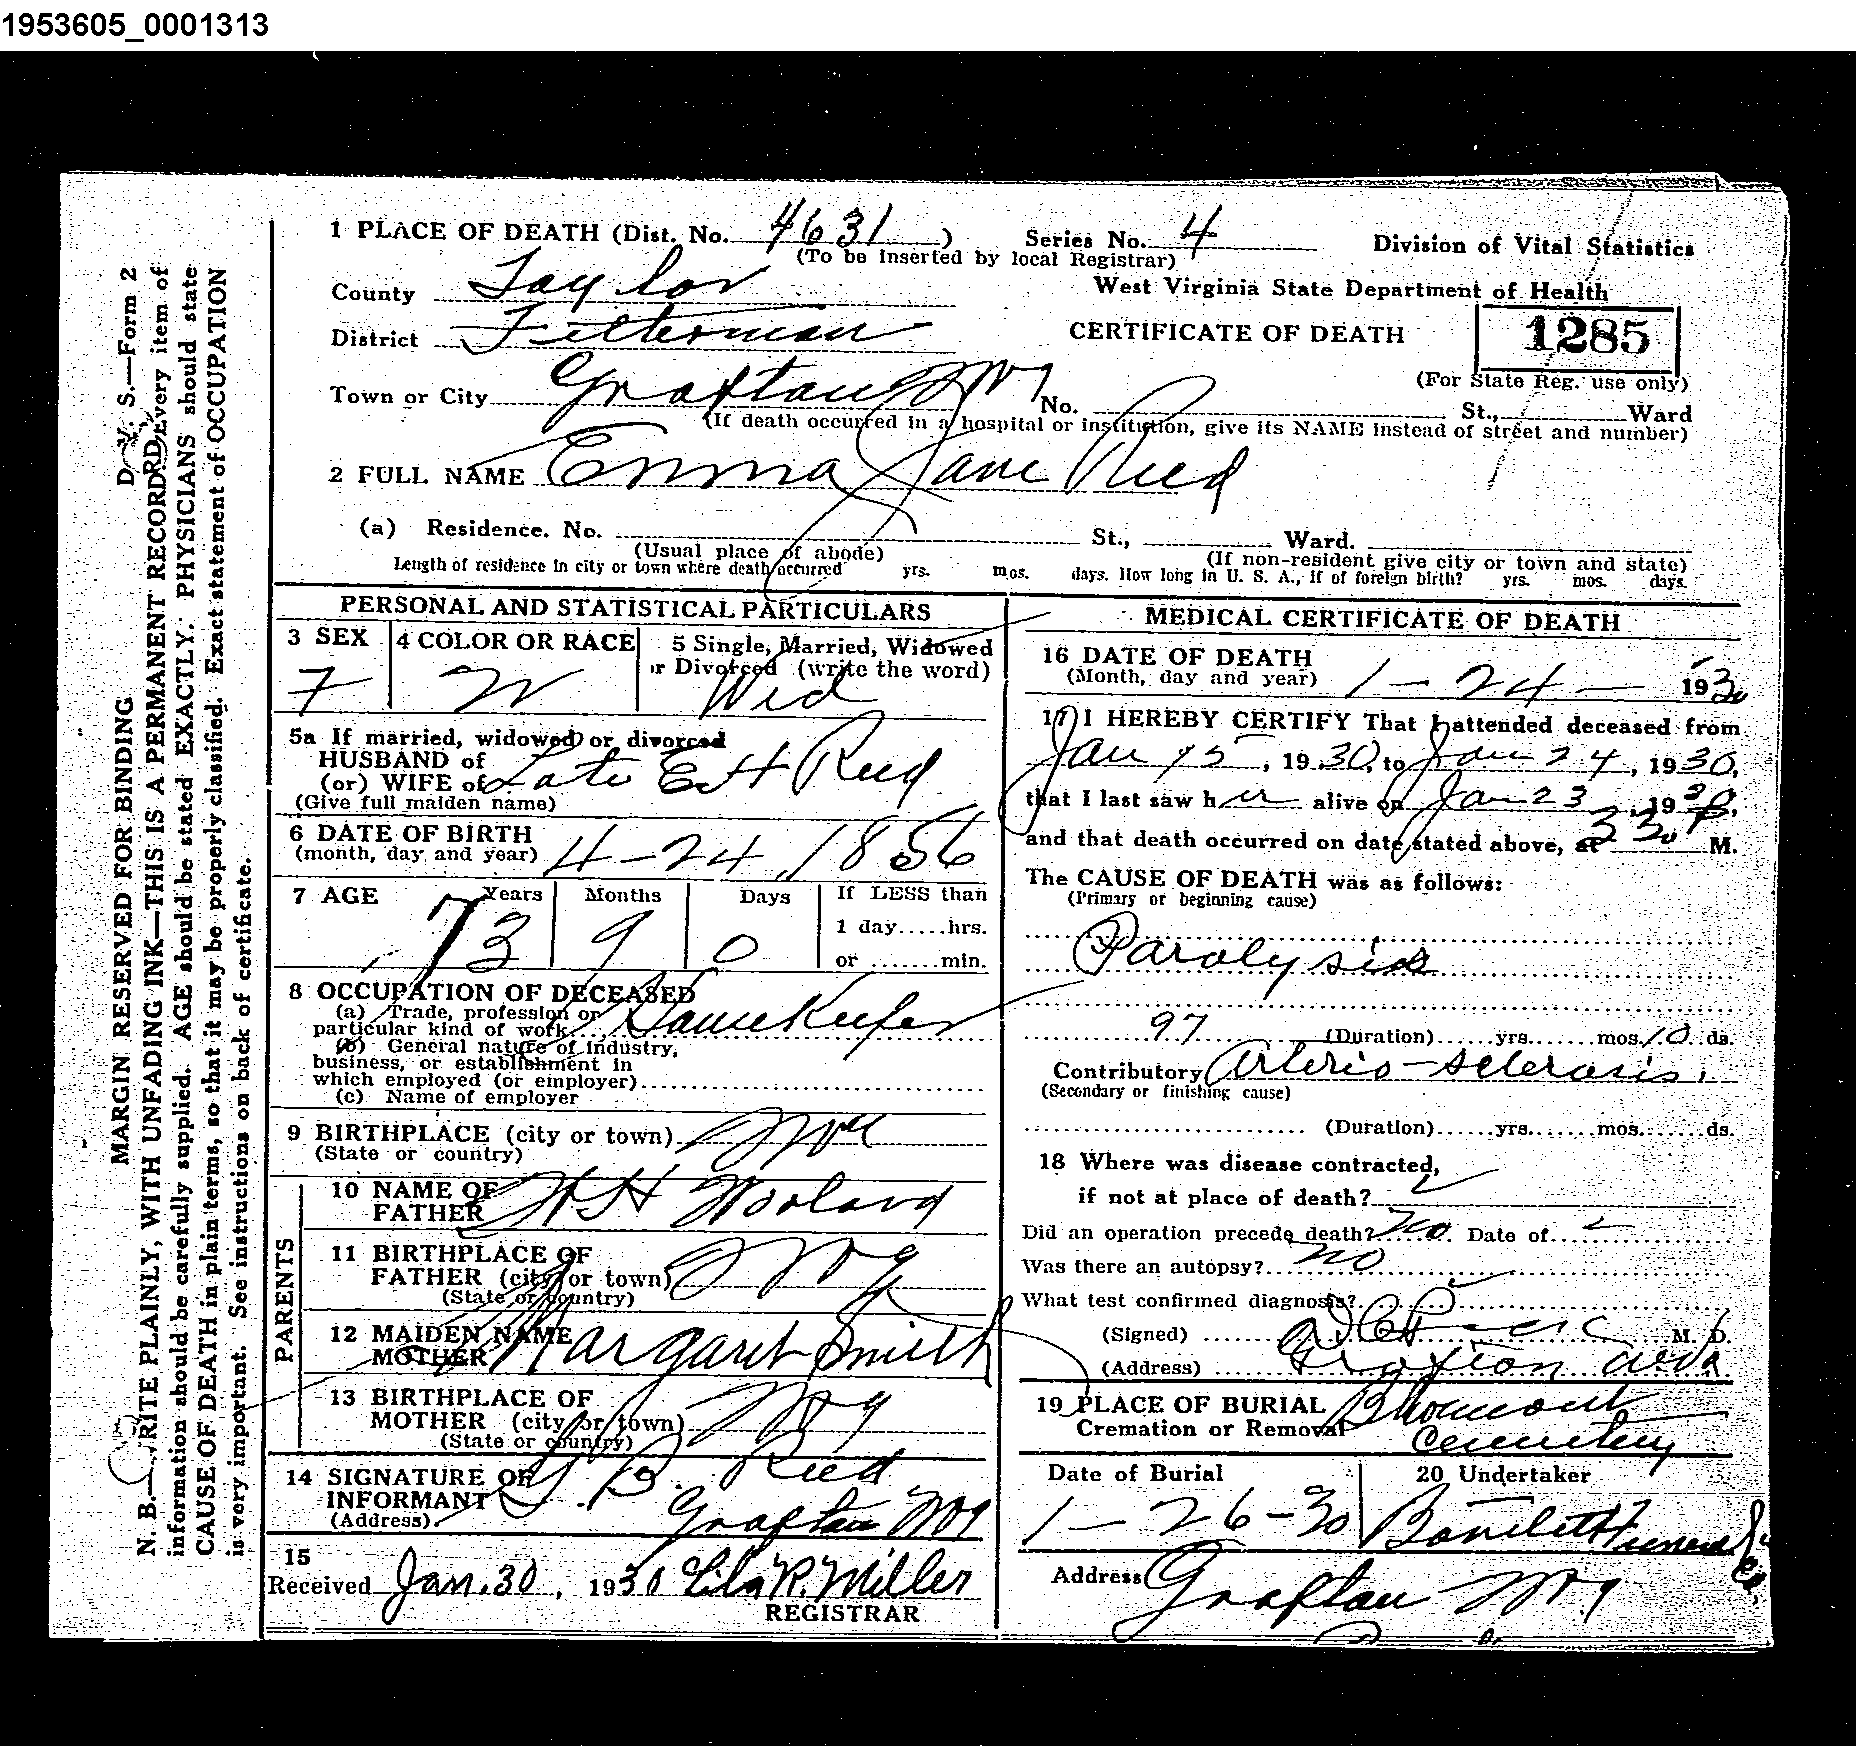 1953605_0001313
1 PLACE OF DEATH (Dist. No. 4631 ) Series No. 4 Division of Vital Statistics
(To be inserted by local Registrar)
County Taylor West Virginia State Department of Health
District Fetterman CERTIFICATE OF DEATH 1285
(For State Reg. use only)
Town or City Grafton No. St., Ward
(If death occurred in a hospital or institution, give its NAME instead of street and number)
2 FULL NAME Emma Jane Reed
(a) Residence. No. St., Ward.
(Usual place of abode) (If non-resident give city or town and state)
Length of residence in city or town where death occurred yrs. mos. days. How long in U. S. A., if of foreign birth? yrs. mos. days.
PERSONAL AND STATISTICAL PARTICULARS
3 SEX 4 COLOR OR RACE 5 Single, Married, Widowed
or Divorced (write the word)
F W Wid
5a If married, widowed or divorced
HUSBAND of
(or) WIFE of Late E H Reed
(Give full maiden name)
6 DATE OF BIRTH
(month, day and year) 4-24, 1856
7 AGE Years Months Days If LESS than
1 day.....hrs.
73 9 0
or .......min.
8 OCCUPATION OF DECEASED
(a) Trade, profession or
particular kind of work
(b) General nature of industry,
business, or establishment in
which employed (or employer)
(c) Name of employer
9 BIRTHPLACE (city or town)
(State or country)
PARENTS
10 NAME OF
FATHER
11 BIRTHPLACE OF
FATHER (city or town)
(State or country)
12 MAIDEN NAME
MOTHER Margaret Smith
13 BIRTHPLACE OF
MOTHER (city or town)
(State or country)
14 SIGNATURE OF
INFORMANT B. Reed
(Address) Grafton
15
Received Jan. 30, 1930 Lila R. Miller
REGISTRAR
MEDICAL CERTIFICATE OF DEATH
16 DATE OF DEATH
(Month, day and year) 1-24- 1930
17 I HEREBY CERTIFY That I attended deceased from
Jan 15, 1930, to Jan 24, 1930,
that I last saw her alive on Jan 23, 1930,
and that death occurred on date stated above, at 3 30 P M.
The CAUSE OF DEATH was as follows:
(Primary or beginning cause)
Paralysis
97 (Duration)......yrs.......mos. 10 ds.
Contributory Arterio-sclerosis.
(Secondary or finishing cause)
(Duration)......yrs.......mos.......ds.
18 Where was disease contracted,
if not at place of death?
Did an operation precede death? no. Date of
Was there an autopsy? no
What test confirmed diagnosis?
(Signed) M. D.
(Address) Grafton
19 PLACE OF BURIAL
Cremation or Removal Bluemont
Cemetery
Date of Burial 20 Undertaker
1-26-30 Bartlett Funeral
Address Grafton
D. V. S.—Form 2
MARGIN RESERVED FOR BINDING
N. B.—WRITE PLAINLY, WITH UNFADING INK—THIS IS A PERMANENT RECORD. Every item of
information should be carefully supplied. AGE should be stated EXACTLY. PHYSICIANS should state
CAUSE OF DEATH in plain terms, so that it may be properly classified. Exact statement of OCCUPATION
is very important. See instructions on back of certificate.